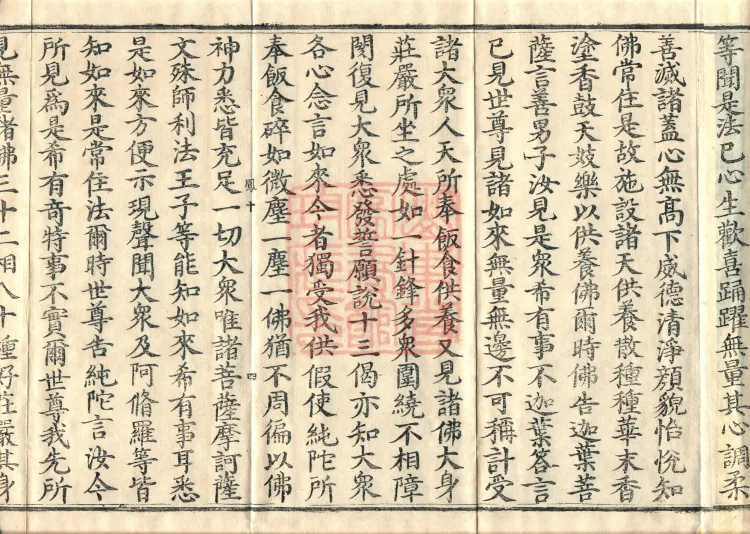 等聞是法已心生歡喜踊躍無量其心調柔
善滅諸蓋心無髙下威德清淨顔貌怡悅知
佛常住是故施設諸天供養散種種華末香
塗香鼓天妓樂以供養佛爾時佛告迦葉菩
薩言善男子汝見是衆希有事不迦葉答言
已見世尊見諸如來無量無邊不可稱計受
諸大衆人天所奉飯食供養又見諸佛大身
莊嚴所坐之處如一針鋒多衆圍繞不相障
閡復見大衆悉發誓願說十三偈亦知大衆
各心念言如來今者獨受我供假使純陀所
奉飯食碎如微塵一塵一佛猶不周徧以佛
鳳十 四
神力悉皆充足一切大衆唯諸菩薩摩訶薩
文殊師利法王子等能知如來希有事耳悉
是如來方便示現聲聞大衆及阿脩羅等皆
知如來是常住法爾時世尊告純陀言汝今
所見爲是希有奇特事不實爾世尊我先所
見無量諸佛三十二相八十種好莊嚴其身